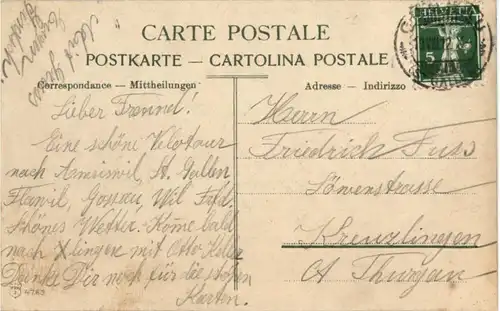 CARTE POSTALE
POSTKARTE — CARTOLINA POSTALE
Correspondance — Mittheilungen
Adresse — Indirizzo
HELVETIA
5
Lieber Freund!
Eine schöne Velotour
nach Amriswil, St. Gallen
Flawil, Gossau, Wil
Schönes Wetter. Kome bald
nach Xlingen mit Otto Keller
Danke Dir noch für die schönen
Karten.
Herrn
Friedrich Fuss
Löwenstrasse
Kreuzlingen
Ct Thurgau